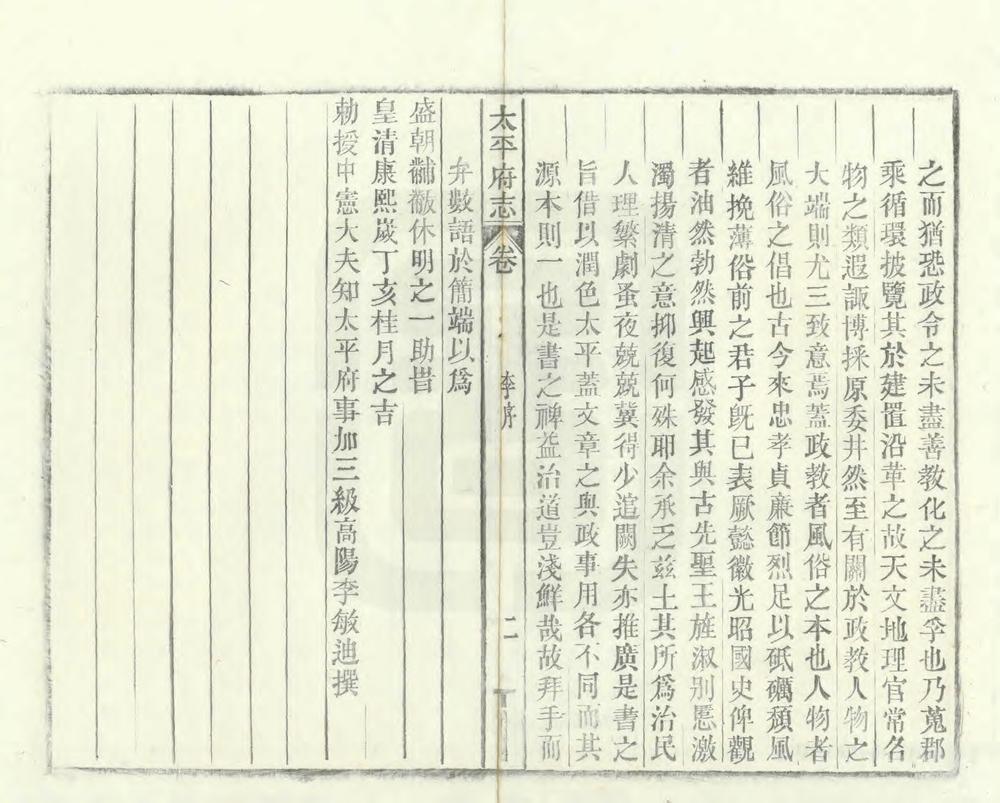 之而猶恐政令之未盡善教化之未盡孚也乃蒐郡
乘循環披覽其於建置沿革之故天文地理官常名
物之類遐諏博採原委井然至有關於政教人物之
大端則尤三致意焉蓋政教者風俗之本也人物者
風俗之倡也古今來忠孝貞廉節烈足以砥礪頹風
維挽薄俗前之君子旣已表厥懿徽光昭國史俾觀
者油然勃然興起感發其與古先聖王旌淑別慝激
濁揚清之意抑復何殊耶余承乏茲土其所爲治民
人理繁劇蚤夜兢兢冀得少逭闕失亦推廣是書之
旨借以潤色太平蓋文章之與政事用各不同而其
源本則一也是書之禆益治道豈淺鮮哉故拜手而
太平府志 卷 李序 二
弁數語於簡端以爲
盛朝黼黻休明之一助旹
皇清康熙歲丁亥桂月之吉
勅授中憲大夫知太平府事加三級高陽李敏迪撰